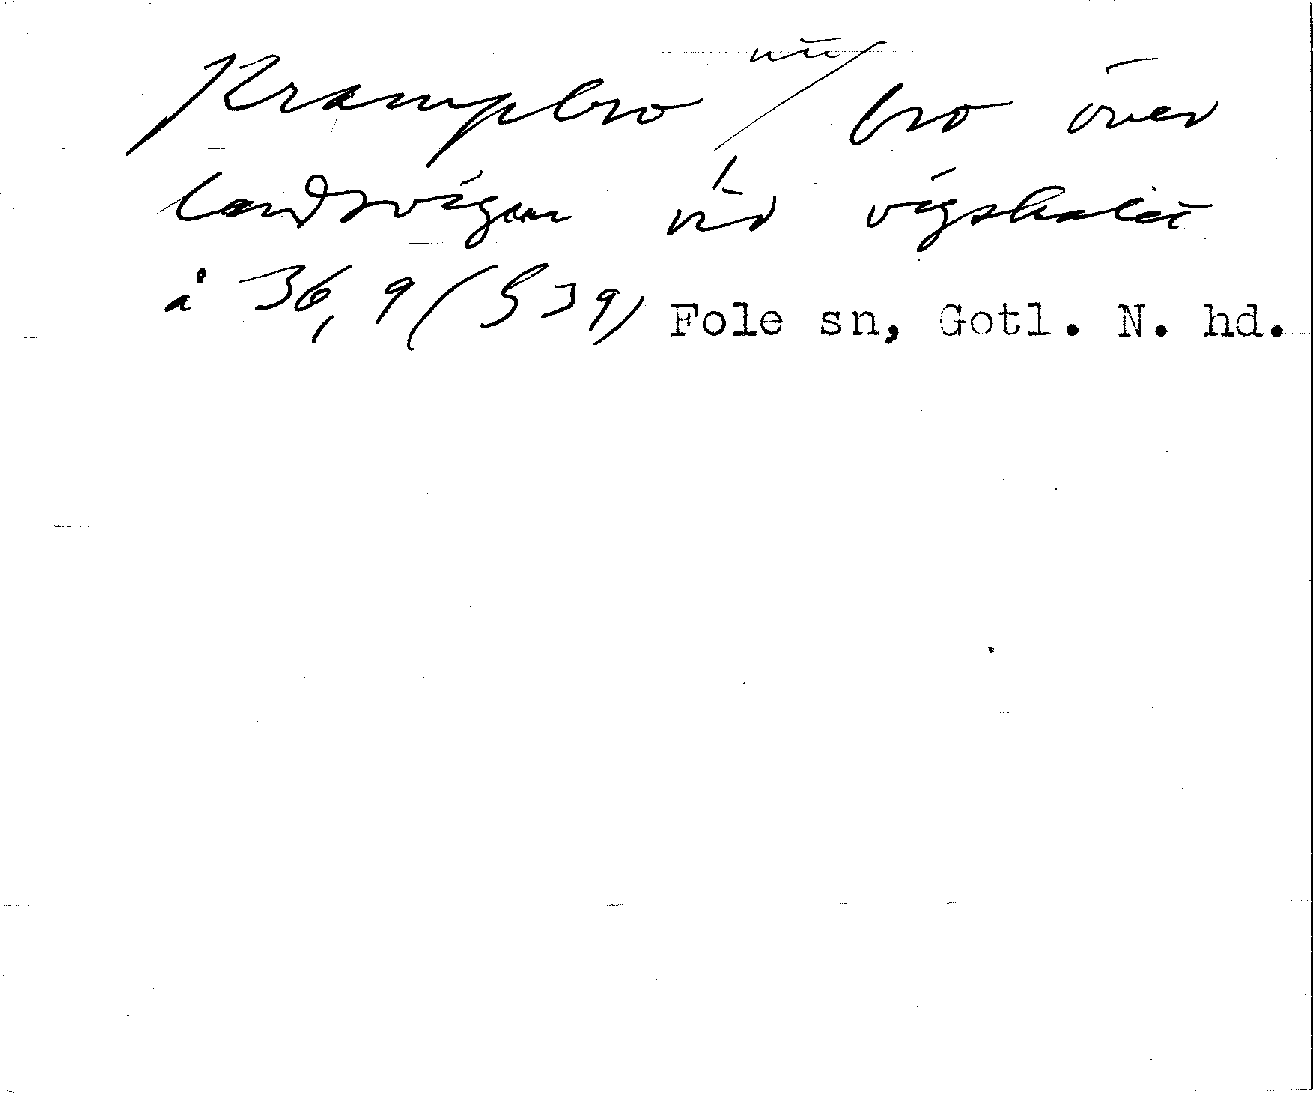 Krampbro / bro över
landsvägen vid vägskälet
å 36,9 (S 39) Fole sn, Gotl. N. hd.